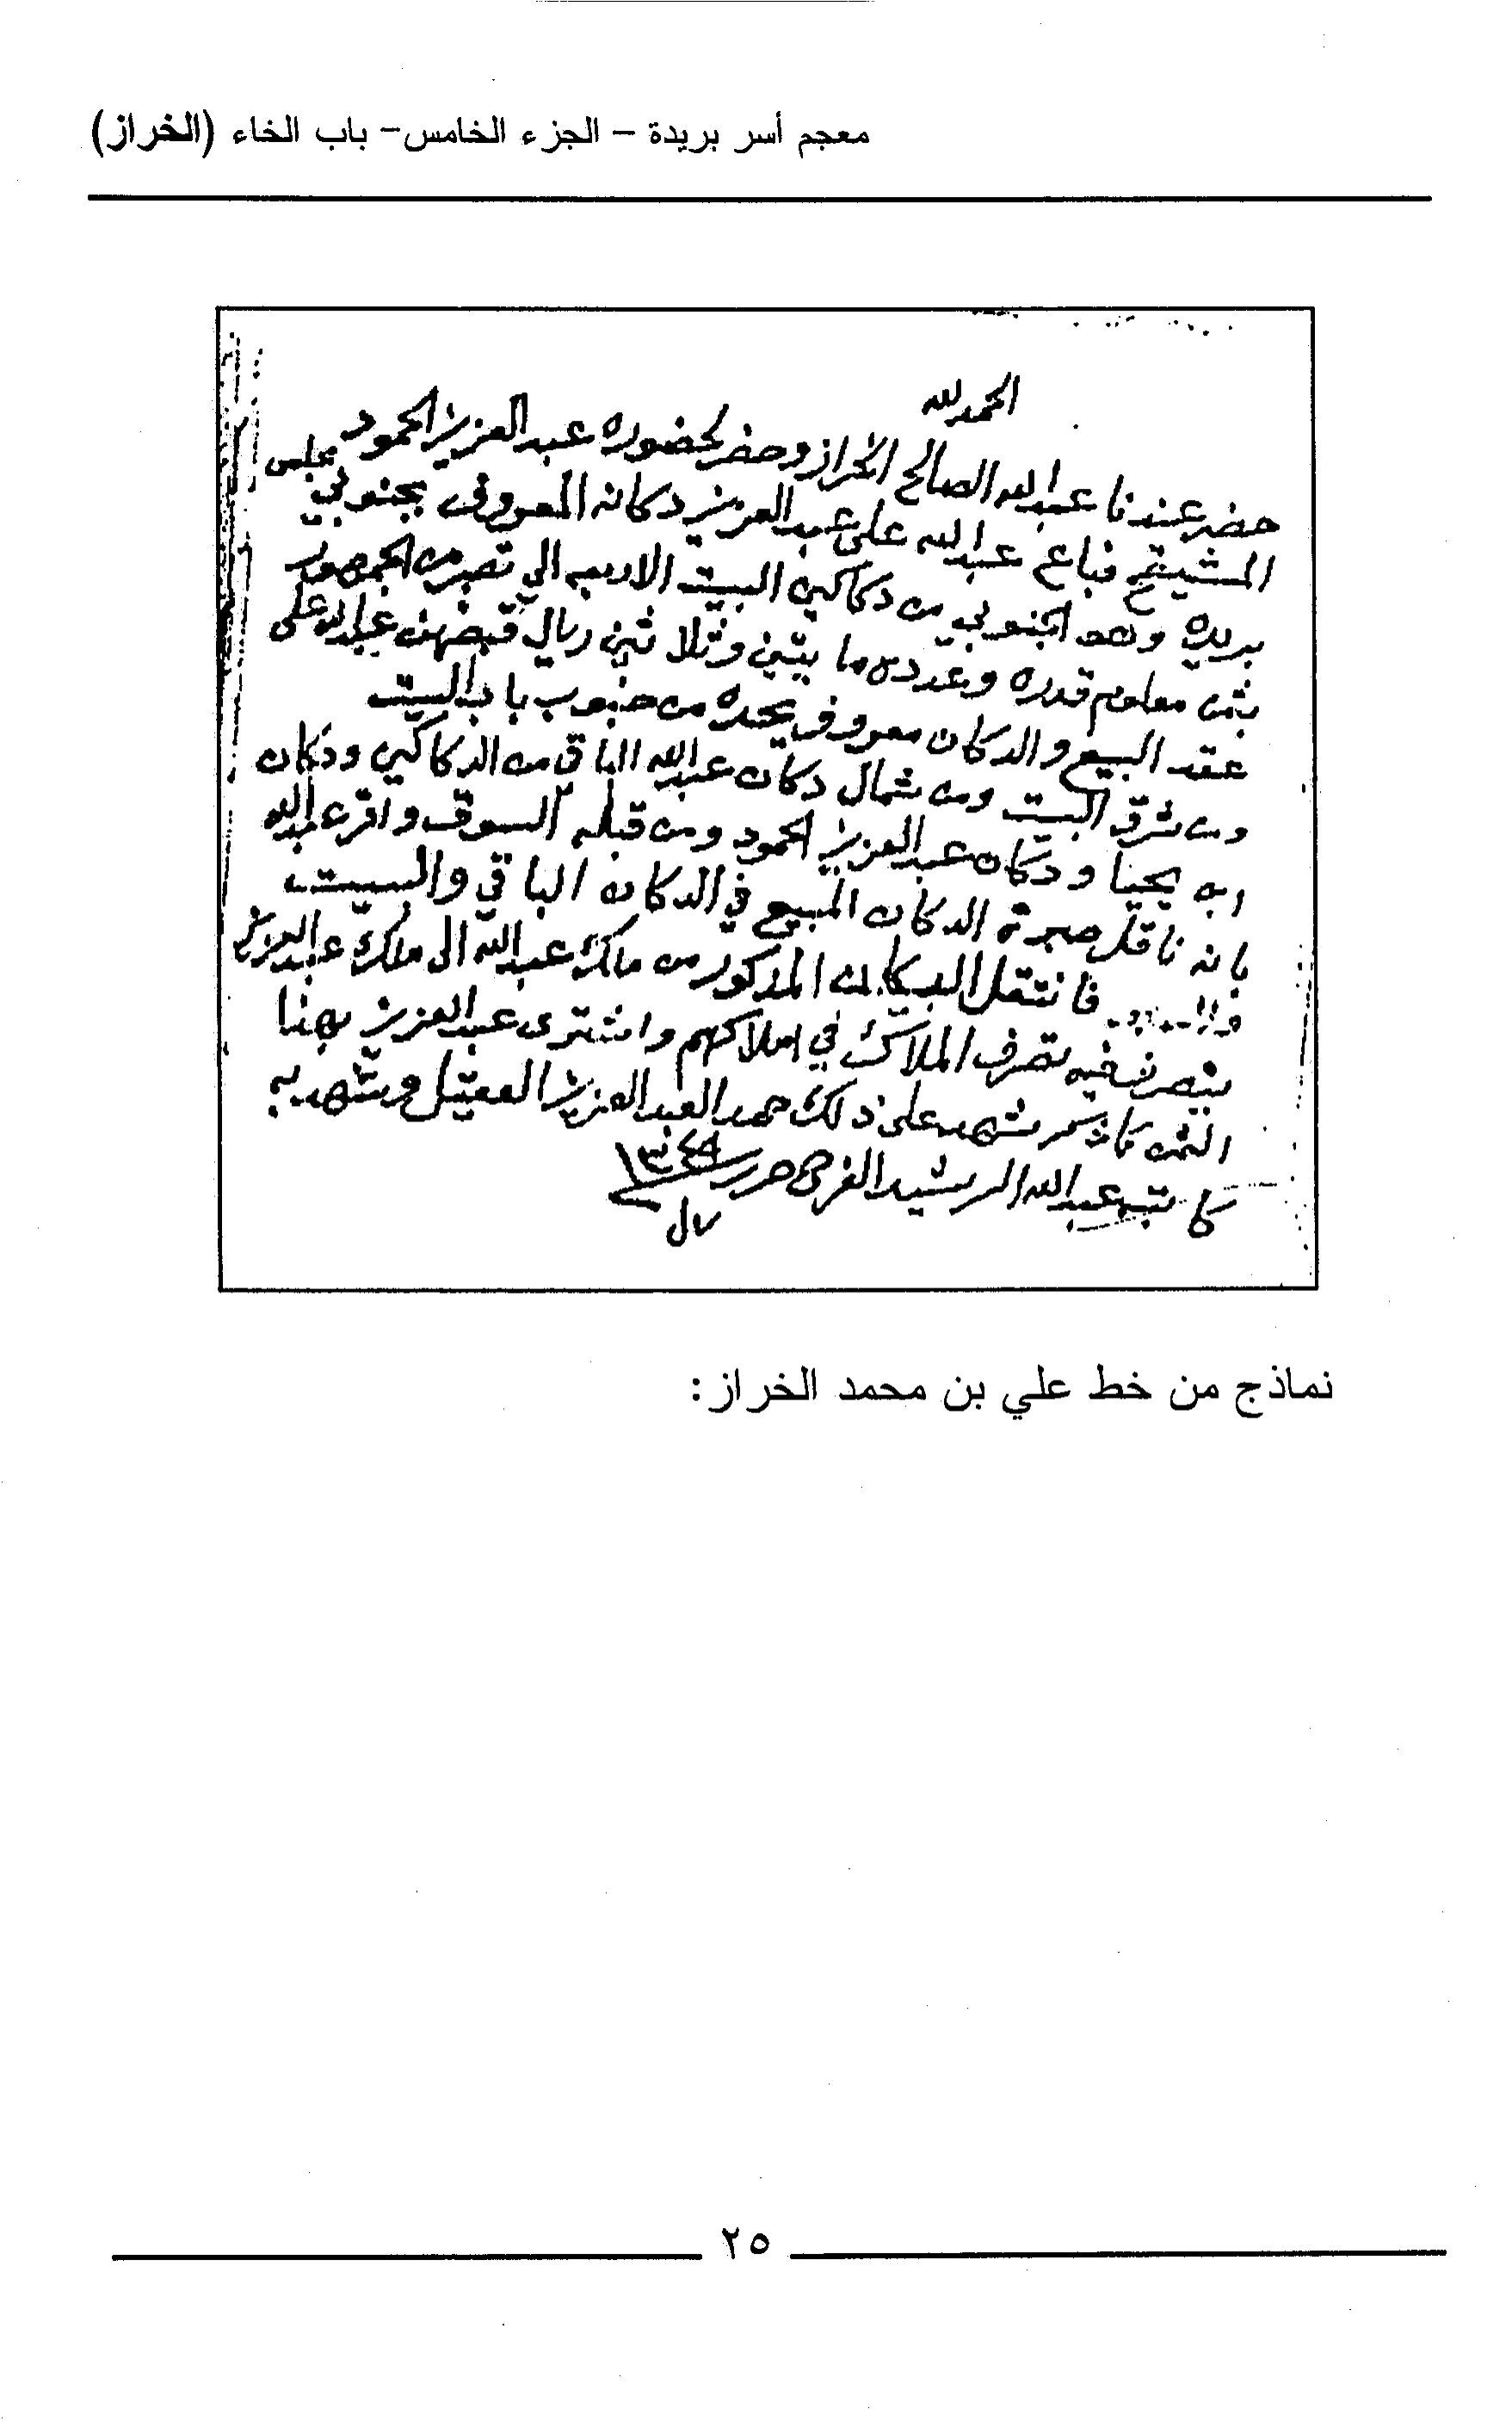 معجم أسر بريدة – الجزء الخامس– باب الخاء (الخراز)
الحمد لله
حضر عندنا عبد الله الصالح الخراز وحضر لحضوره عبد العزيز الحمود مجلس
المشيقح فباع عبد الله على عبد العزيز دكانه المعروف بجنوبي
بريده وهو الجنوبي من دكاكين البيت
بثمن معلوم قدره وعدده مايتين وثلاثين ريال قبضهن عبد الله على
عقد البيع والدكان معروف يحده من جنوب باب البيت
ومن شرق البيت ومن شمال دكان عبد الله الباقي من الدكاكين ودكان
ابن يحيا ودكان عبد العزيز الحمود ومن قبله السوق واقر عبد الله
بانه ناقل صبرة الدكان المبيع في الدكان الباقي والبيت
فانتقل الدكان المذكور من ملك عبد الله الى ملك عبد العزيز
يتصرف فيه تصرف الملاك في املاكهم واشترى عبد العزيز بهذا
الثمن كما ذكر شهد على ذلك حمد العبد العزيز العقيل وشهد به
كاتبه عبد الله الرشيد الفرج حرر ١٣٤٩
نماذج من خط علي بن محمد الخراز:
٢٥